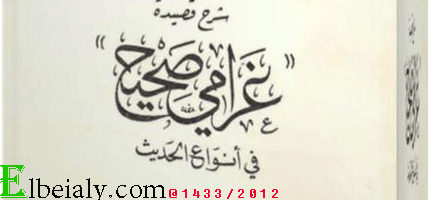 شرح قصيدة
"غرامي صحيح"
في أنواع الحديث
Elbeialy.com @1433/2012